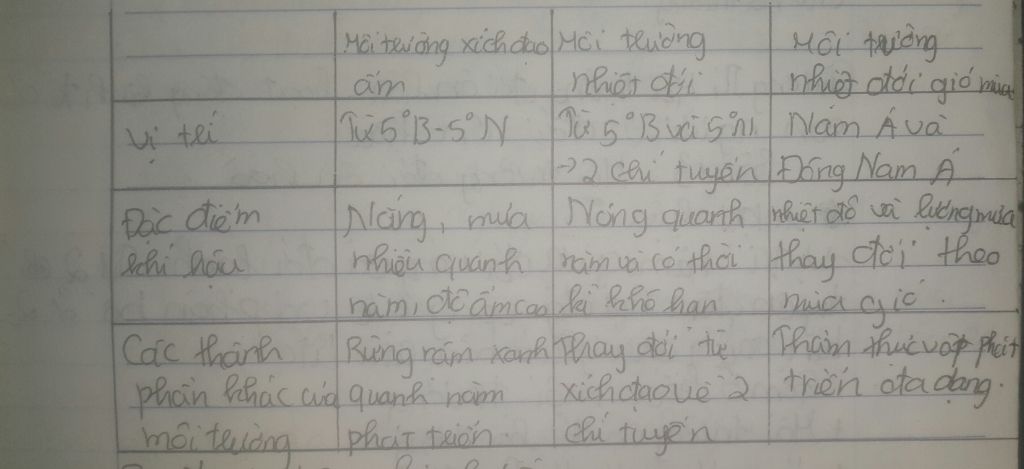 Môi trường xích đạo ẩm
Môi trường nhiệt đới
Môi trường nhiệt đới gió mùa
Vị trí
Từ 5°B-5°N
Từ 5°B và 5°N
→2 chí tuyến
Nam Á và
Đông Nam Á
Đặc điểm
khí hậu
Nắng, mưa
nhiều quanh
năm, độ ẩm cao
Nóng quanh
năm và có thời
kì khô hạn
nhiệt độ và lượng mưa
thay đổi theo
mùa gió.
Các thành
phần khác của
môi trường
Rừng rậm xanh
quanh năm
phát triển.
Thay đổi từ
xích đạo về 2
chí tuyến
Thảm thực vật phát
triển đa dạng.